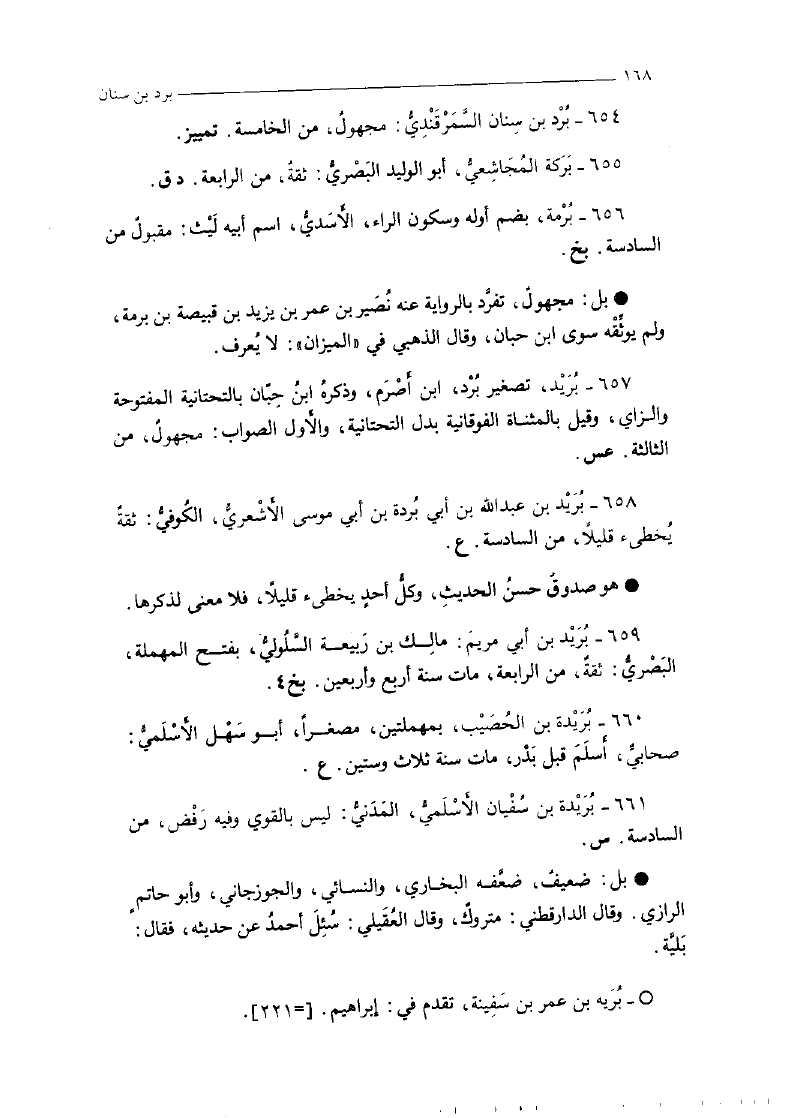 ١٦٨ برد بن سنان
٦٥٤ ـ بُرْد بن سِنان السَّمَرْقَنْدِيُّ: مجهولٌ، من الخامسة. تمييز.
٦٥٥ ـ بَرَكة المُجَاشِعيُّ، أبو الوليد البَصْريُّ: ثقةٌ، من الرابعة. د ق.
٦٥٦ ـ بُرْمة، بضم أوله وسكون الراء، الأَسَديُّ، اسم أبيه لَيْث: مقبولٌ من
السادسة. بخ.
● بل: مجهولٌ، تفرَّد بالرواية عنه نُصَير بن عمر بن يزيد بن قبيصة بن برمة،
ولم يوثِّقْه سوى ابن حبان، وقال الذهبي في «الميزان»: لا يُعرف.
٦٥٧ ـ بُرَيْد، تصغير بُرْد، ابن أَصْرَم، وذكرهُ ابنُ حِبّان بالتحتانية المفتوحة
والزاي، وقيل بالمثناة الفوقانية بدل التحتانية، والأول الصواب: مجهولٌ، من
الثالثة. عس.
٦٥٨ ـ بُرَيْد بن عبدالله بن أبي بُردة بن أبي موسى الأَشْعريُّ، الكُوفيُّ: ثقةٌ
يُخطىء قليلًا، من السادسة. ع.
● هو صدوقٌ حسنُ الحديثِ، وكلُّ أحدٍ يخطىء قليلًا، فلا معنى لذكرها.
٦٥٩ ـ بُرَيْد بن أبي مريم: مالِك بن رَبيعة السَّلُوليُّ، بفتح المهملة،
البَصْريُّ: ثقةٌ، من الرابعة، مات سنة أربع وأربعين. بخ٤.
٦٦٠ ـ بُرَيْدة بن الحُصَيْب، بمهملتين، مصغراً، أبو سَهْل الأَسْلَميُّ:
صحابيٌّ، أسلَمَ قبل بَدْر، مات سنة ثلاث وستين. ع.
٦٦١ ـ بُرَيْدة بن سُفْيان الأَسْلَميُّ، المَدَنيُّ: ليس بالقوي وفيه رَفْض، من
السادسة. س.
● بل: ضعيفٌ، ضعَّفه البخاري، والنسائي، والجوزجاني، وأبو حاتم
الرازي. وقال الدارقطني: متروكٌ، وقال العُقَيلي: سُئِلَ أحمدُ عن حديثه، فقال:
بَليَّة.
○ ـ بُرَيه بن عمر بن سَفِينة، تقدم في: إبراهيم. [=٢٢١].